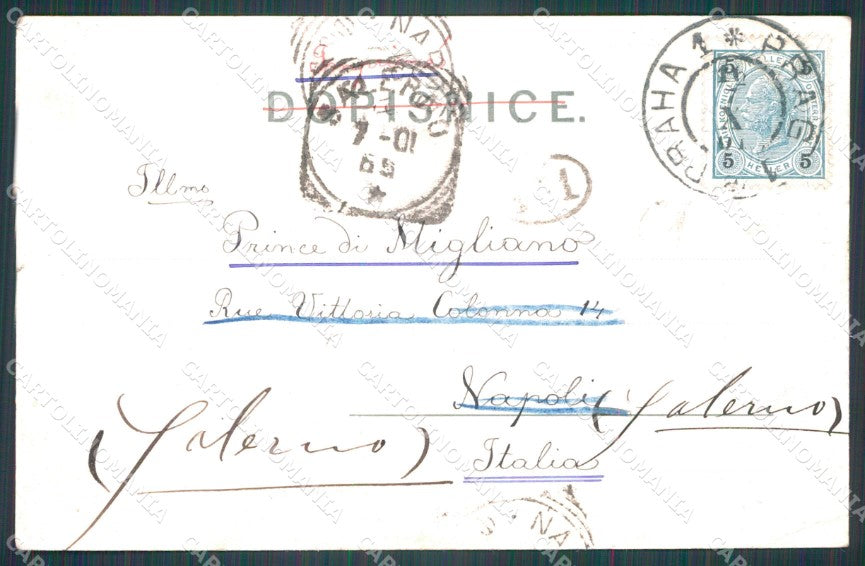 DOPISNICE.
PRAHA 1 * PRAG 1
5 5
5 HELLER 5
SALERNO
10-01
Illmo
Prince di Migliano
Rue Vittoria Colonna 14
Napoli (Salerno)
(Salerno)
Italia
NA
CARTOLINOMANIA